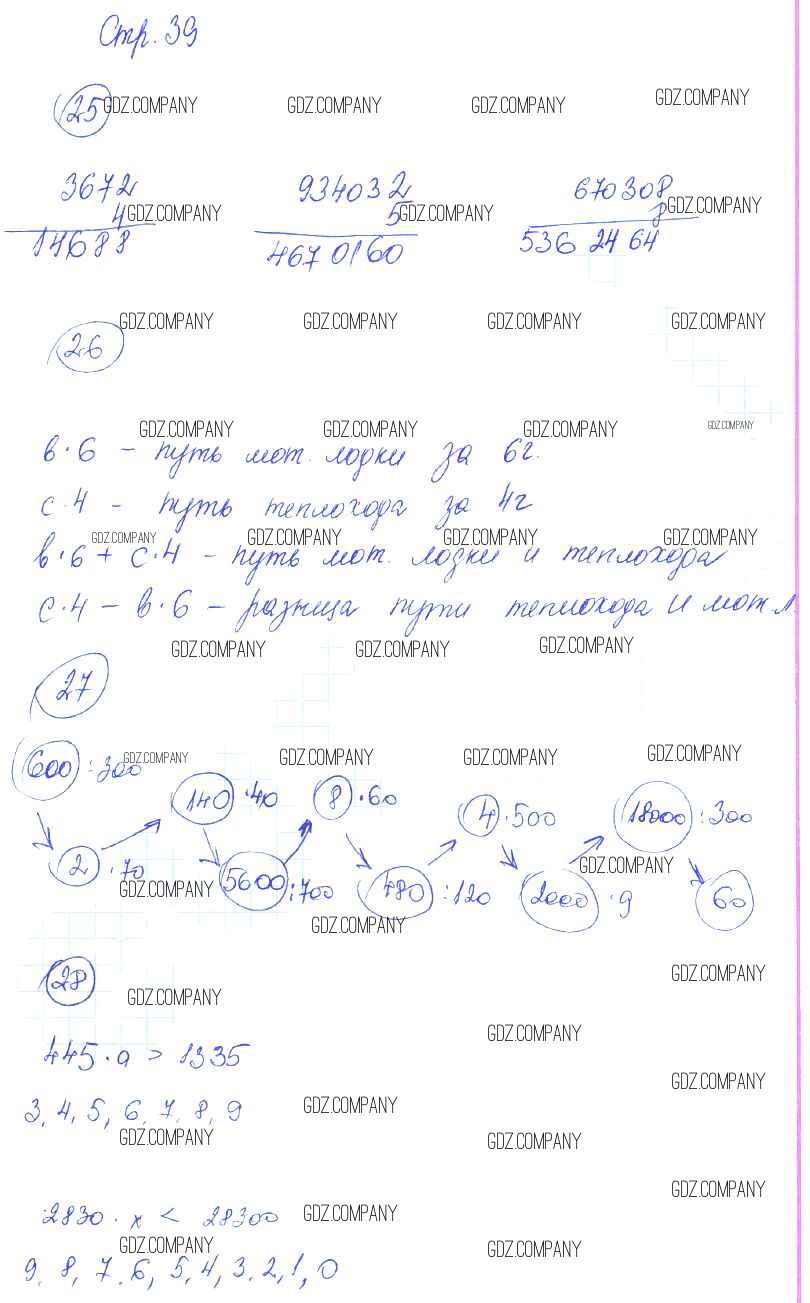 Стр. 39
25 GDZ.COMPANY GDZ.COMPANY GDZ.COMPANY GDZ.COMPANY
3672 934032 670308
4 GDZ.COMPANY 5 GDZ.COMPANY 8 GDZ.COMPANY
14688 4670160 536 24 64
GDZ.COMPANY GDZ.COMPANY GDZ.COMPANY GDZ.COMPANY
26
GDZ.COMPANY GDZ.COMPANY GDZ.COMPANY GDZ.COMPANY
в·6 – путь мот. лодки за 6г.
с·4 – путь теплохода за 4г
GDZ.COMPANY GDZ.COMPANY GDZ.COMPANY GDZ.COMPANY
в·6 + с·4 – путь мот. лодки и теплохода
с·4 – в·6 – разница пути теплохода и мот.л
GDZ.COMPANY GDZ.COMPANY GDZ.COMPANY
27
GDZ.COMPANY GDZ.COMPANY GDZ.COMPANY GDZ.COMPANY
600 :300 140 ·40 8 ·60 4 ·500 18000 :300
GDZ.COMPANY
2 ·70 5600 :700 480 :120 2000 ·9 60
GDZ.COMPANY
GDZ.COMPANY
28 GDZ.COMPANY GDZ.COMPANY
GDZ.COMPANY
445·a > 1335
GDZ.COMPANY
3, 4, 5, 6, 7, 8, 9 GDZ.COMPANY
GDZ.COMPANY GDZ.COMPANY
GDZ.COMPANY
2830 · x < 28300 GDZ.COMPANY
GDZ.COMPANY GDZ.COMPANY
9, 8, 7, 6, 5, 4, 3, 2, 1, 0